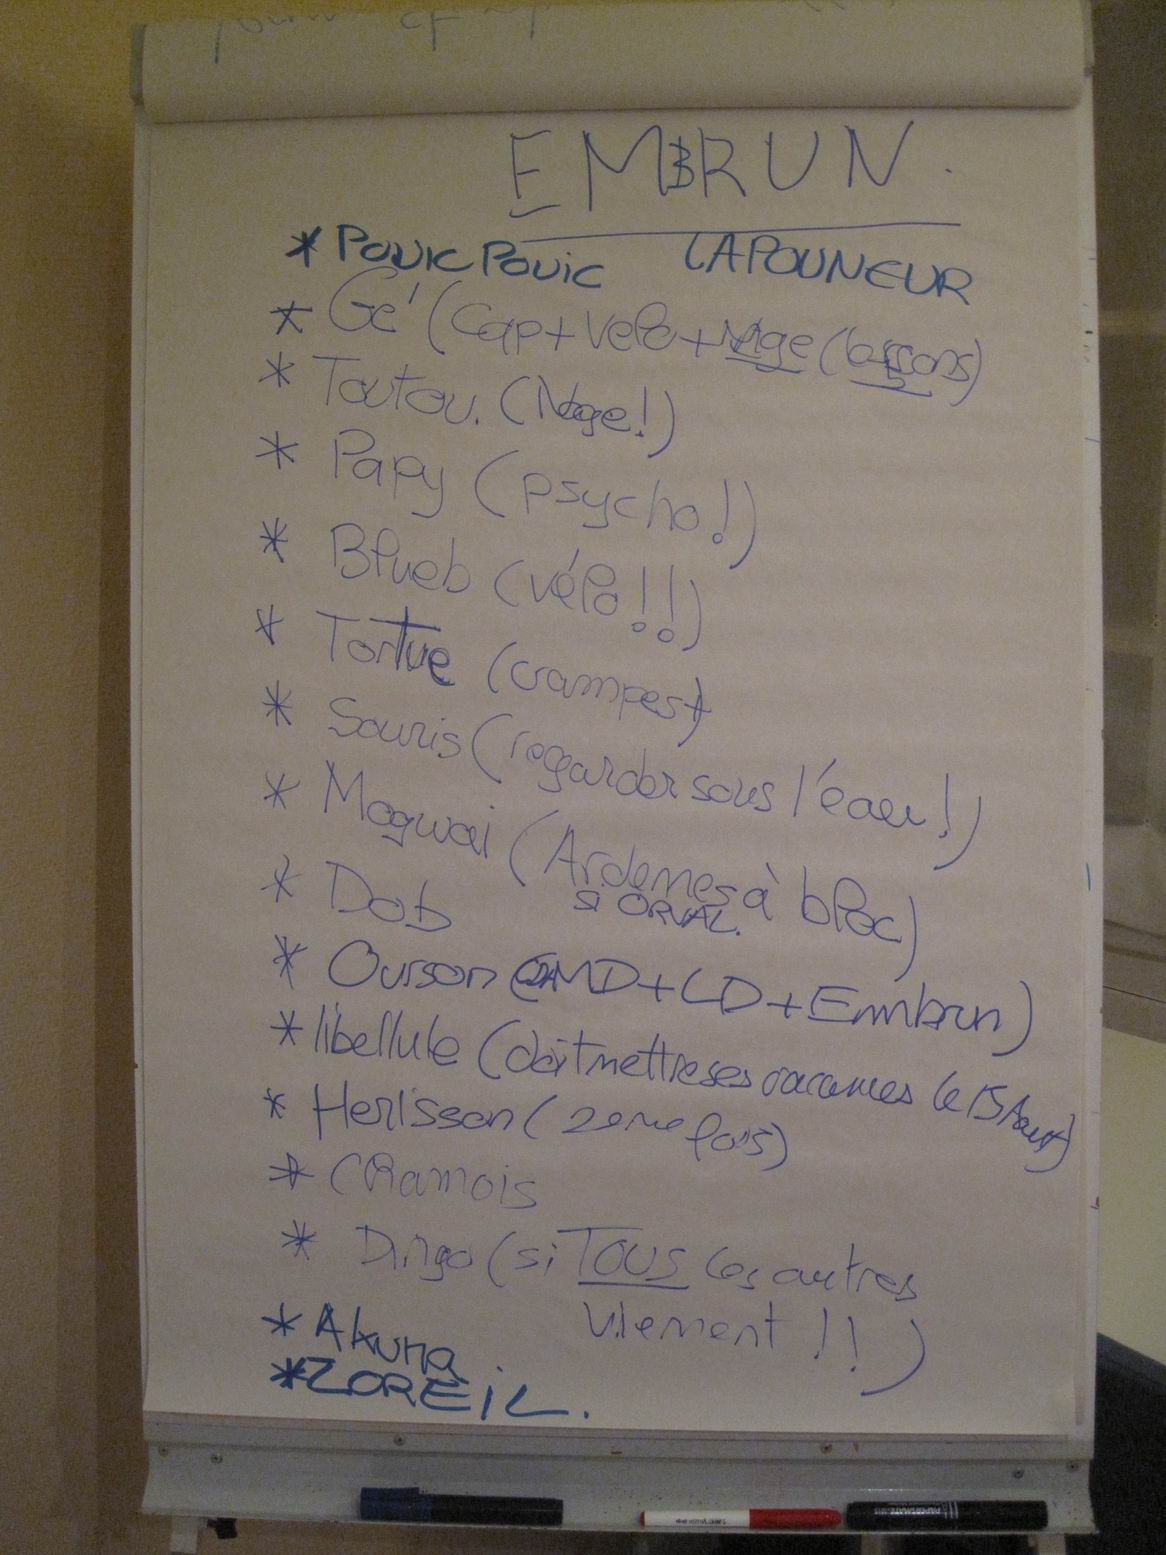 EMBRUN.
* POUIC POUIC LAPOUNEUR
* Gé (Cap + Vélo + Nage (
* Toutou. (Nage!)
* Papy (psycho!)
* Blueb (vélo!!)
* Tortue (crampes)
* Souris (regarder sous l'eau!)
* Mogwai (Ardennes à bloc)
si ORVAL.
* Dob
* Ourson (MD + LD + Embrun)
* libellule (doit mettre ses vacances le 15 Aout)
* Herisson (2eme fois)
* Chamois
* Dingo (si TOUS les autres
viennent!!)
* Akuna
* ZOREIL.